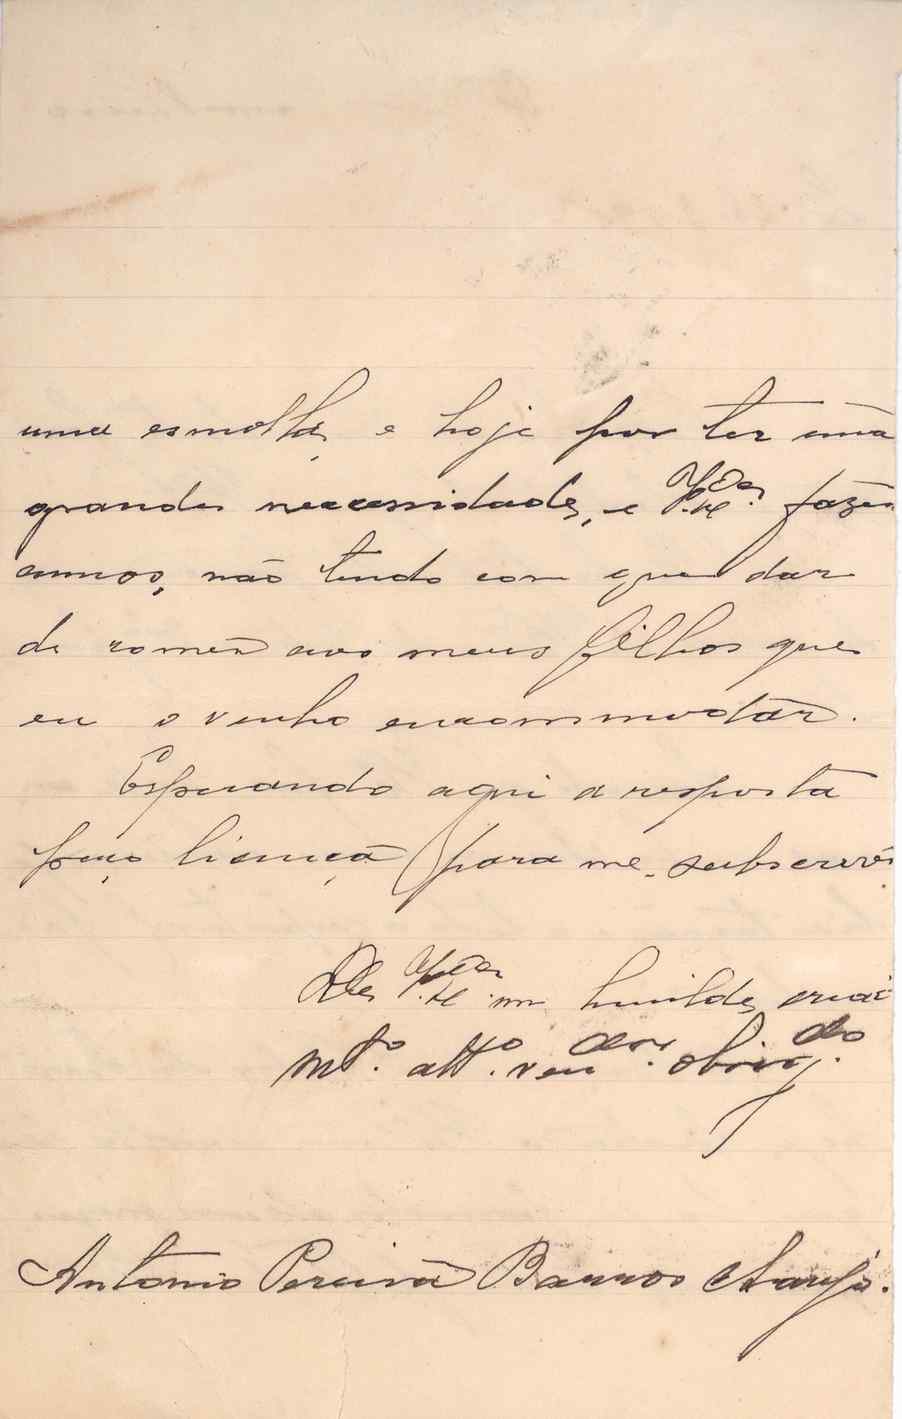 uma esmolla, e hoje por ter uma
grande necessidade, e V.Exª. fazer
annos, não tendo com que dar
de comer aos meus filhos que
eu o venho encommodar.
Esperando aqui a resposta
peço licença para me subscrever
De V.Exª. um humilde criad
Mtº. attº. vendor. obrigdo.
Antonio Pereira Barros Araujo.